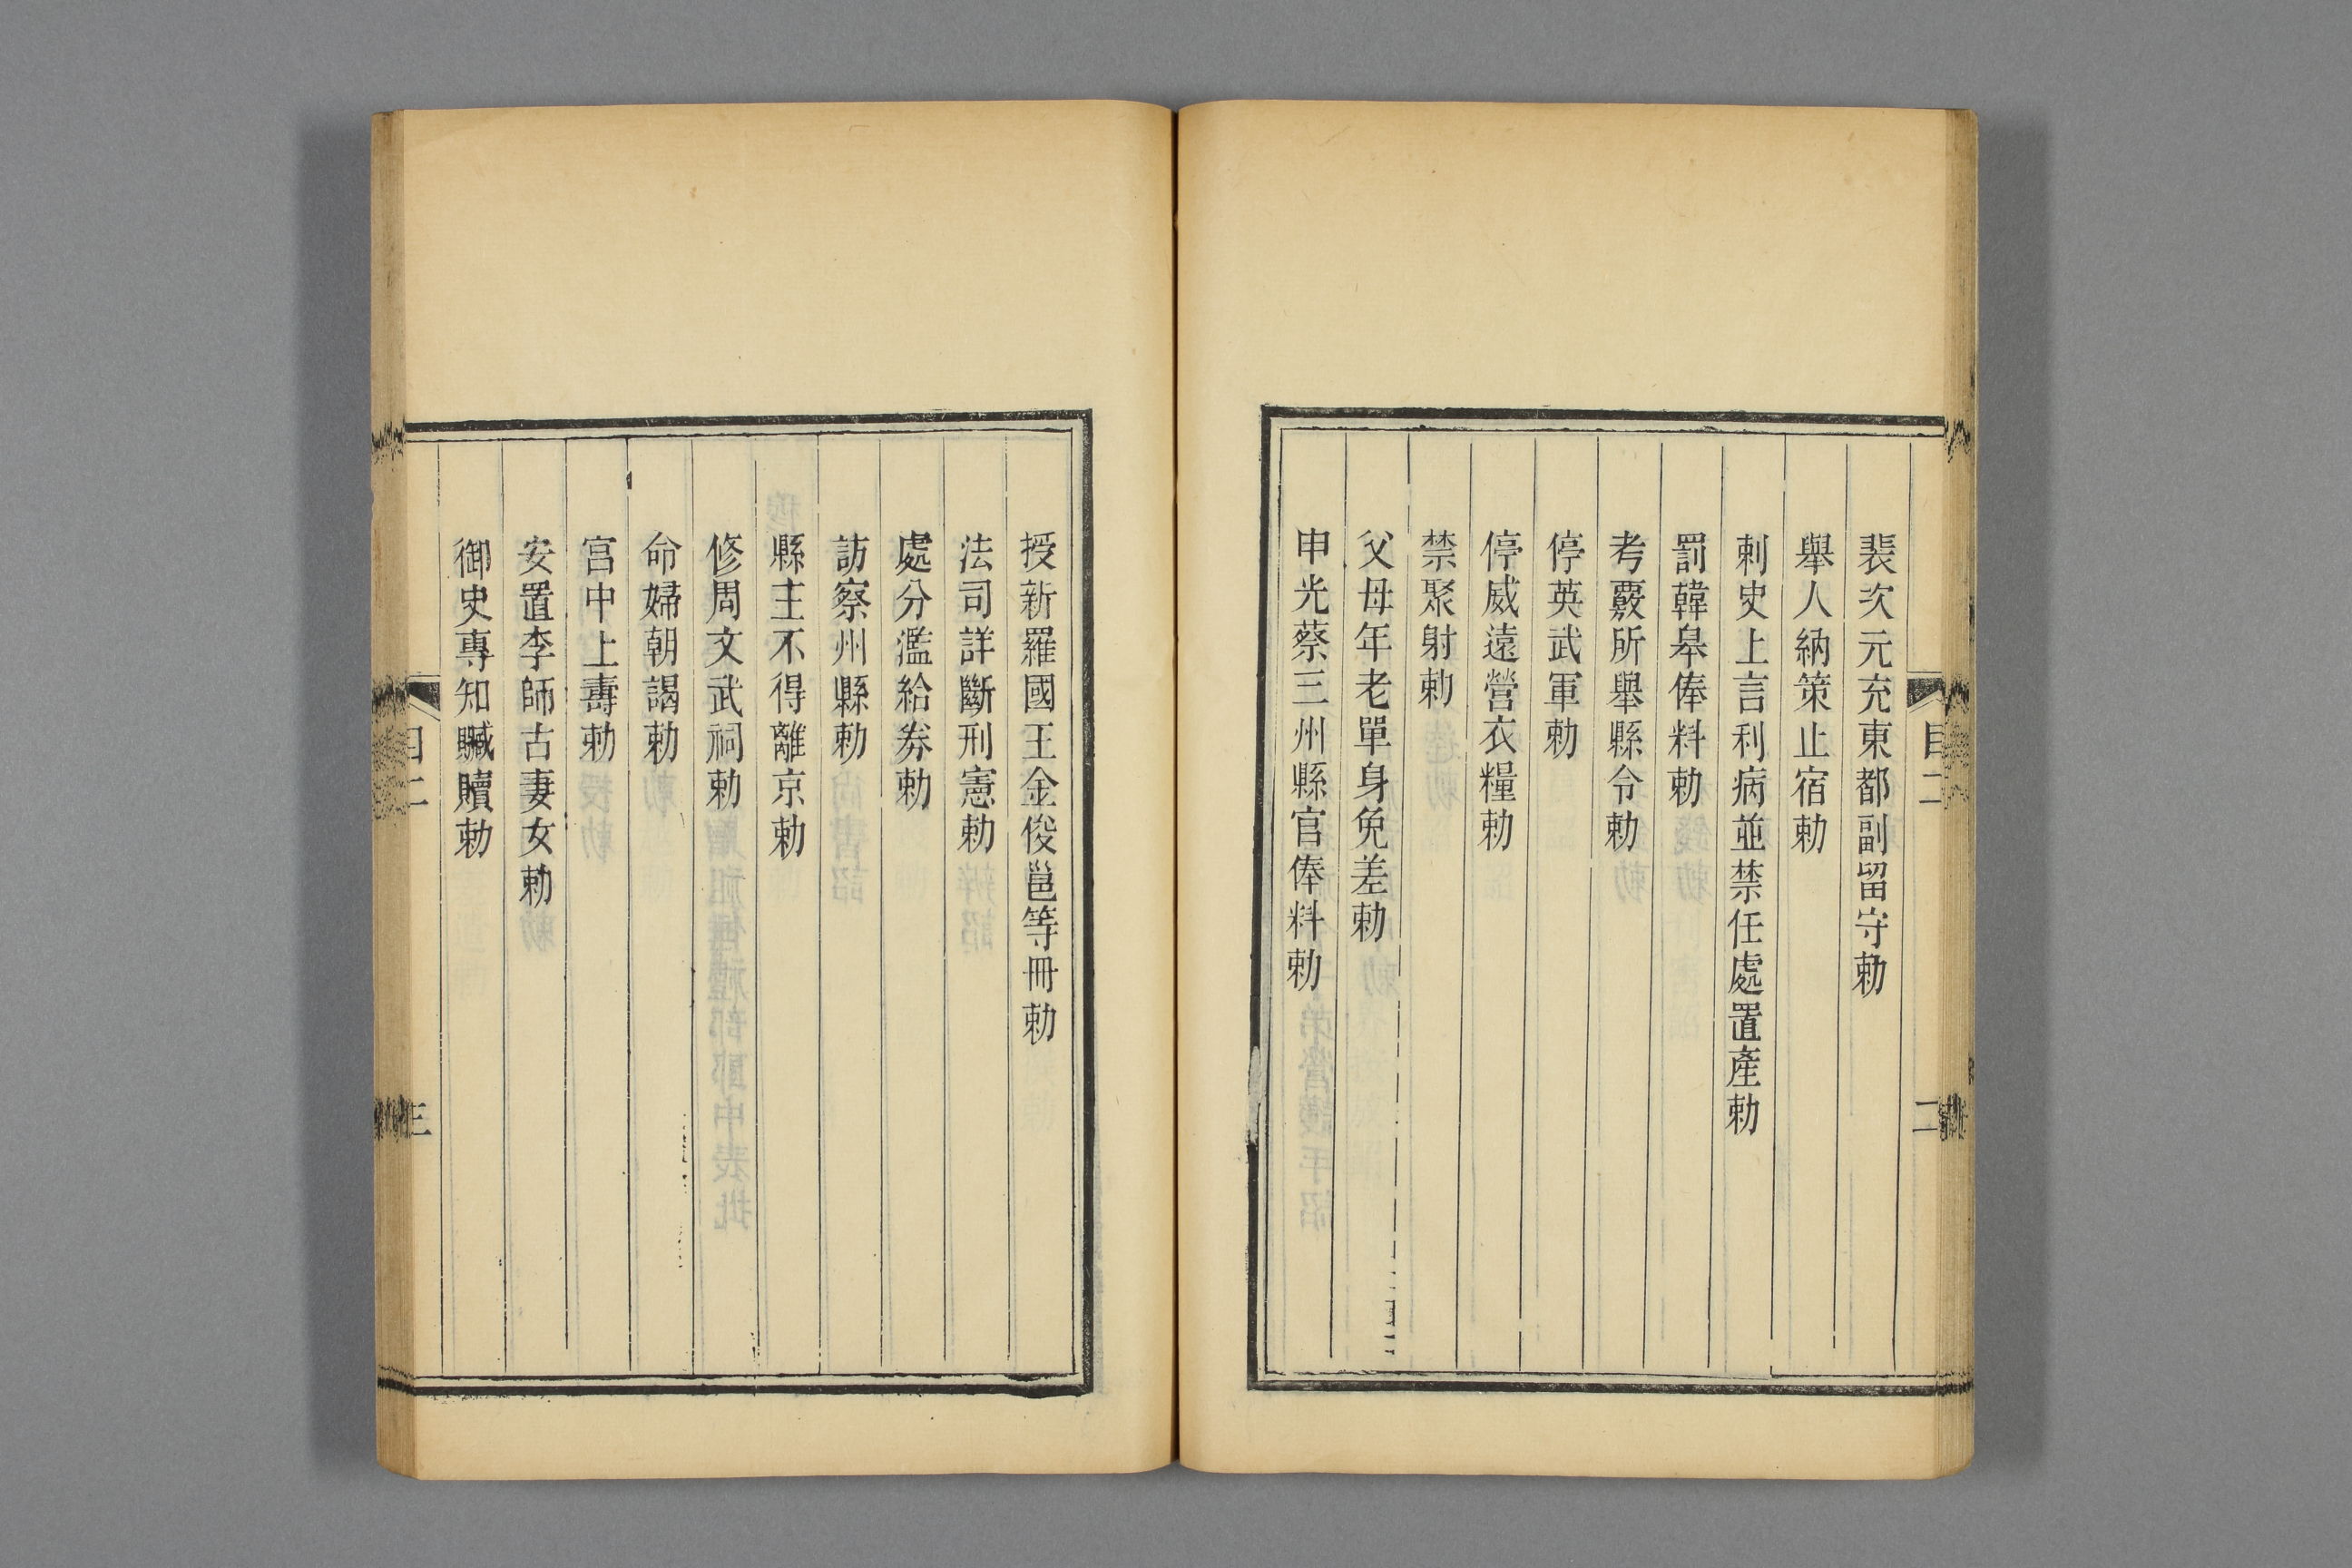 裴次元充東都副留守勅
舉人納策止宿勅
刺史上言利病並禁任處置產勅
罰韓皋俸料勅
考覈所舉縣令勅
停英武軍勅
停威遠營衣糧勅
禁聚射勅
父母年老單身免差勅
申光蔡三州縣官俸料勅
目二
二
授新羅國王金俊邕等冊勅
法司詳斷刑憲勅
處分濫給券勅
訪察州縣勅
縣主不得離京勅
修周文武祠勅
命婦朝謁勅
宮中上壽勅
安置李師古妻女勅
御史專知贓贖勅
目二
三